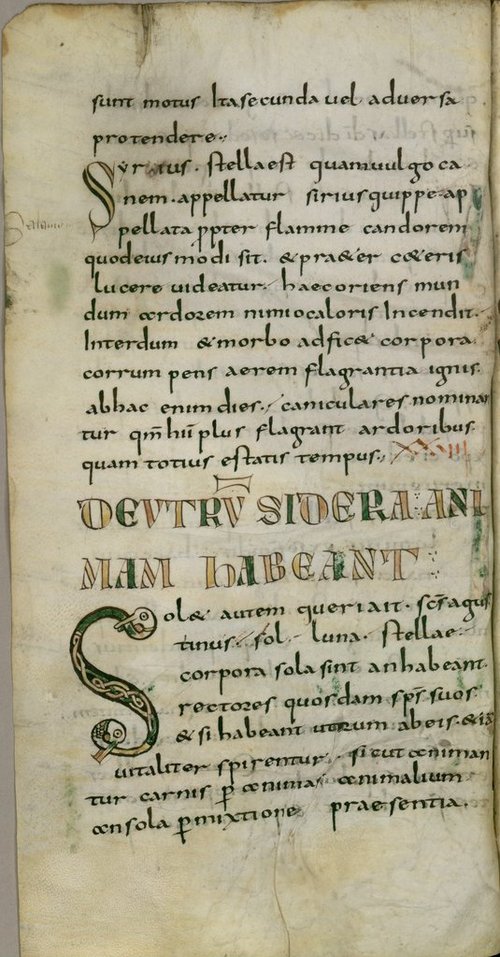 sunt motus Ita secunda uel adversa
protendere.
Syrius. stella est quam uulgo ca
nem. appellatur sirius quippe ap
pellata ppter flamme candorem
quod eius modi sit. & pra&er c&eris
lucere uideatur. haec oriens mun
dum ardorem nimio caloris Incendit.
Interdum & morbo adfic& corpora
corrumpens aerem flagrantia ignis.
ab hac enim dies. caniculares nominan
tur qm̄ hii plus flagrant ardoribus
quam totius estatis tempus. XXIIII
DE UTRŪ SIDERA ANI
MAM hABEANT
Sol& autem queri ait. scs̄ agus
tinus. sol. luna. stellae.
corpora sola sint an habeant.
rectores quosdam sps̄ suos
& si habeant utrum ab eis. &
uitaliter spirentur. sicut animan
tur carnis p anima. animalium
an sola pmixtione praesentia.